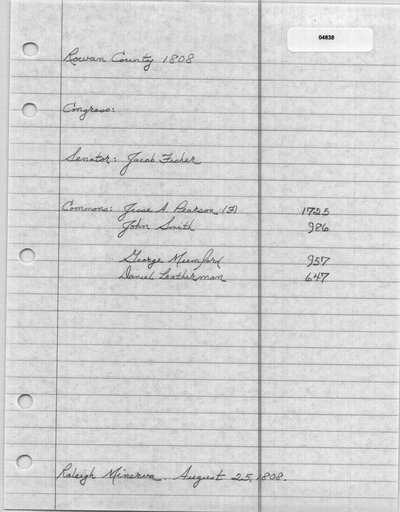 04838
Rowan County 1808
Congress:
Senator: Jacob Fisher
Commons: Jesse A. Pearson (F) 1725
John Smith 986
George Mumford 957
Daniel Leatherman 647
Raleigh Minerva, August 25, 1808.